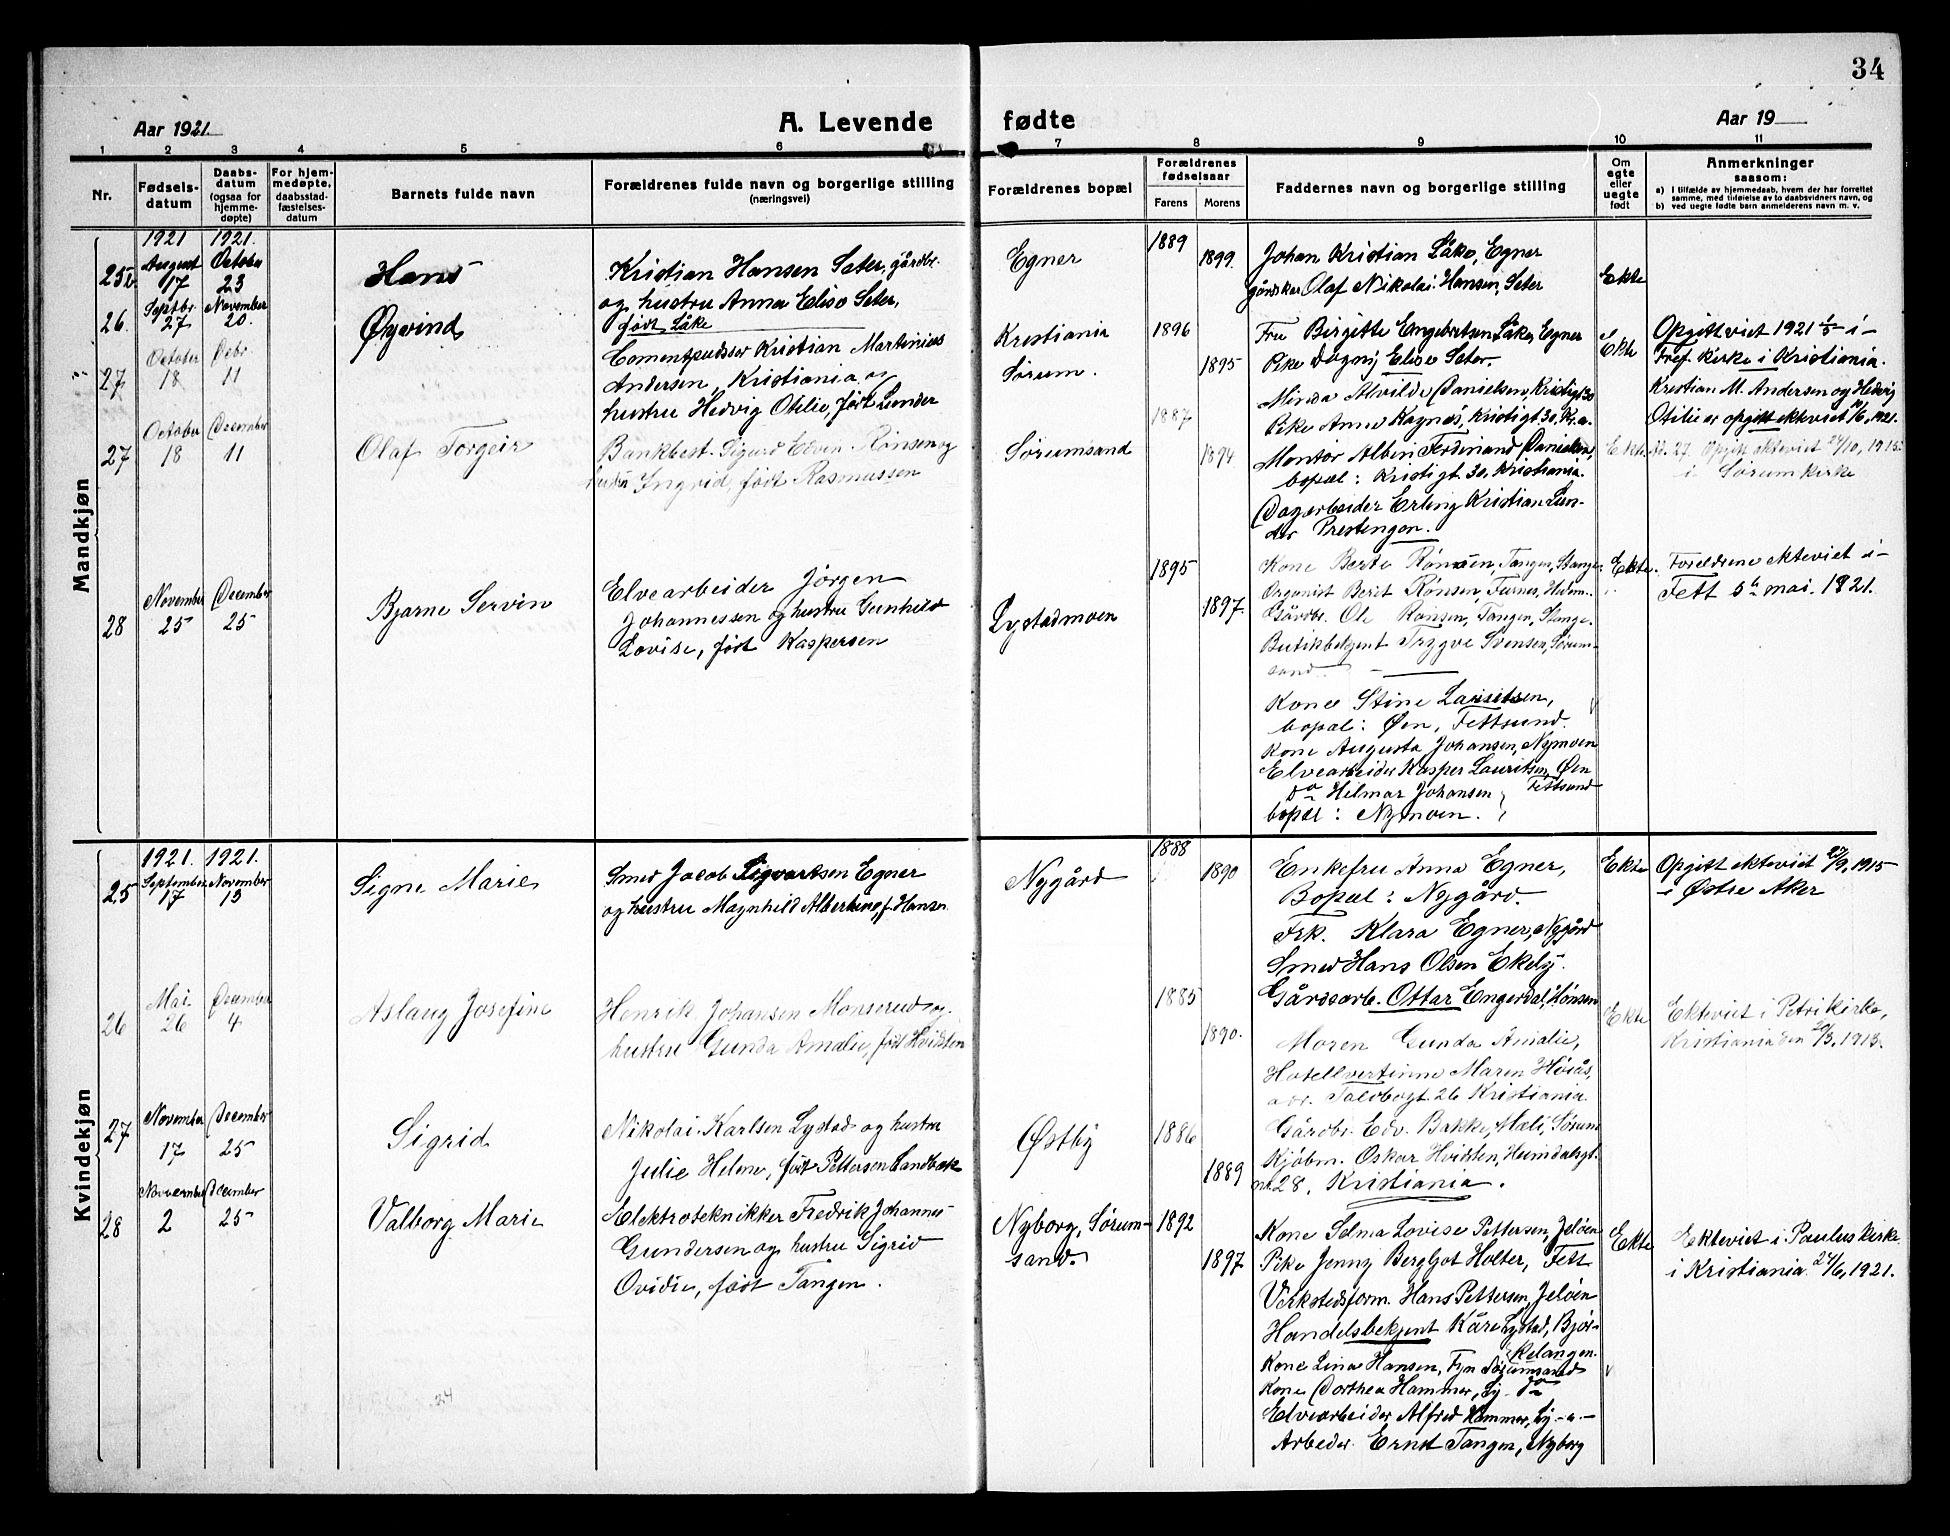 34
Aar 1921.
A. Levende fødte
Aar 19
1 2 3 4 5 6 7 8 9 10 11
Nr.
Fødsels-
datum
Daabs-
datum
(ogsaa for
hjemme-
døpte)
For hjem-
medøpte,
daabsstad-
fæstelses-
datum
Barnets fulde navn
Forældrenes fulde navn og borgerlige stilling
(næringsvei)
Forældrenes bopæl
Forældrenes
fødselsaar
Farens Morens
Faddernes navn og borgerlige stilling
Om
egte
eller
uegte
født
Anmerkninger
saasom:
a) I tilfælde av hjemmedaab, hvem der har forrettet
samme, med tilføielse av to daabsvidners navn, og
b) ved uegte fødte barn anmelderens navn m. v.
Mandkjøn
1921 1921.
25 August 17 October 23
Hans
Kristian Hansen Sæter, gårdbr.
og hustru Anna Elise Sæter,
født Låke
Egner
1889
1899
Johan Kristian Låke, Egner
Olaf Nikolai Hansen, Sæter
Fru Birgitte Engebretsen Låke, Egner
Pike Dagny Elise Sæter.
Ekte
26. Septbr. 27 November 20.
Øyvind
Cementpudsser Kristian Martinius
Andersen, Kristiania og
hustru Hedvig Otilie, født Lunder
Kristiania
Sørum.
1896
1895
Minda Alvilde Danielsen, Kristigt 30
Pike Anne Kaynås, Kristigt 30, Kr.a.
Montør Albin Ferdinand Danielsen,
bopæl: Kristigt. 30, Kristiania.
Dagarbeider Erling Kristian Lun-
der Prestengen.
Ekte
Opgitt viet 1921 1/5 i
Tref. kirke i Kristiania.
Kristian M. Andersen og Hedvig
Otilie er opgitt ekteviet 1921.
27 October 18 Desbr. 11
27 October 18 December 11
Olaf Torgeir
Bankbest. Sigurd Edvin Rönsen og
hustru Ingrid, født Rasmussen
Sørumsand
1887
1894
Kone Berte Rönsen, Tangen, Stange.
Organist Berit Rönsen, Furnes, Hedem.
Gårdbr. Ole Rønsen, Tangen, Stange.
Butikbetjent Trygve Svensen, Sørum-
sand.
Ekte
No. 27. Opgitt ekteviet 24/10, 1915
i Sørum kirke
28 November 25 December 25
Bjarne Servin
Elvearbeider Jörgen
Johannessen og hustru Gunhild
Lovise, født Kaspersen
Lystadmoen
1895
1897
Kone Stine Lauritsen,
bopæl: Øen, Fettsund.
Kone Augusta Johansen, Nymoen
Elvearbeider Kasper Lauritsen, Øen
Fettsund
do Hilmar Johansen
bopæl: Nymoen.
Ekte.
Foreldrene ekteviet i
Fett 5te mai 1921.
Kvindekjøn
1921. 1921.
25 September 17 November 13
Signe Marie
Smed Jacob Sigvartsen Egner
og hustru Magnhild Albertine, f. Hansen
Nygård
1888
1890
Enkefru Anna Egner,
Bopæl: Nygård.
Frk. Klara Egner, Nygård
Smed Hans Olsen Ekeby.
Gårdsarb. Ottar Engerdal, Hønsen
Ekte
Opgitt ekteviet 27/9, 1915
i Østre Aker
26 Mai 26 December 4
Aslaug Josefine
Henrik Johansen Monserud og
hustru Gunda Amalie, født Hvidsten
1885
1890.
Moren Gunda Amalie,
Hotellvertinne Maren Høiås,
adr. Toldbogt. 26 Kristiania
Gårdbr. Edv. Bakke, Mæli, Sørum
Kjøbm. Oskar Hvidsten, Heimdalsgt.
no 28, Kristiania.
Ekte
Ekteviet i Petrikirke,
Kristiania den 20/3, 1913.
27 November 17 December 25
Sigrid
Nikolai Karlsen Lystad og hustru
Julie Helene, født Pettersen Sandbæk
Østby
1886
1889
Kone Selma Lovise Pettersen, Jeløen
Pike Jenny Bergljot Holter, Fett
Verkstedsform. Hans Pettersen, Jeløen
Handelsbetjent Kåre Lystad, Bjør-
kelangen.
28 November 2 December 25
Valborg Marie
Elektrotekniker Fredrik Johannes
Gundersen og hustru Sigrid
Ovidie, født Tangen.
Nyborg, Sørum-
sand.
1892
1897
Kone Lina Hansen, Fyn Sørumsand
Kone Dorthea Hammer, Ly do
Elvearbeider Alfred Hammer, Ly -"-
Arbeider Ernst Tangen, Nyborg
Ekte
Ekteviet i Paulus kirke
i Kristiania 24/6, 1921.
24